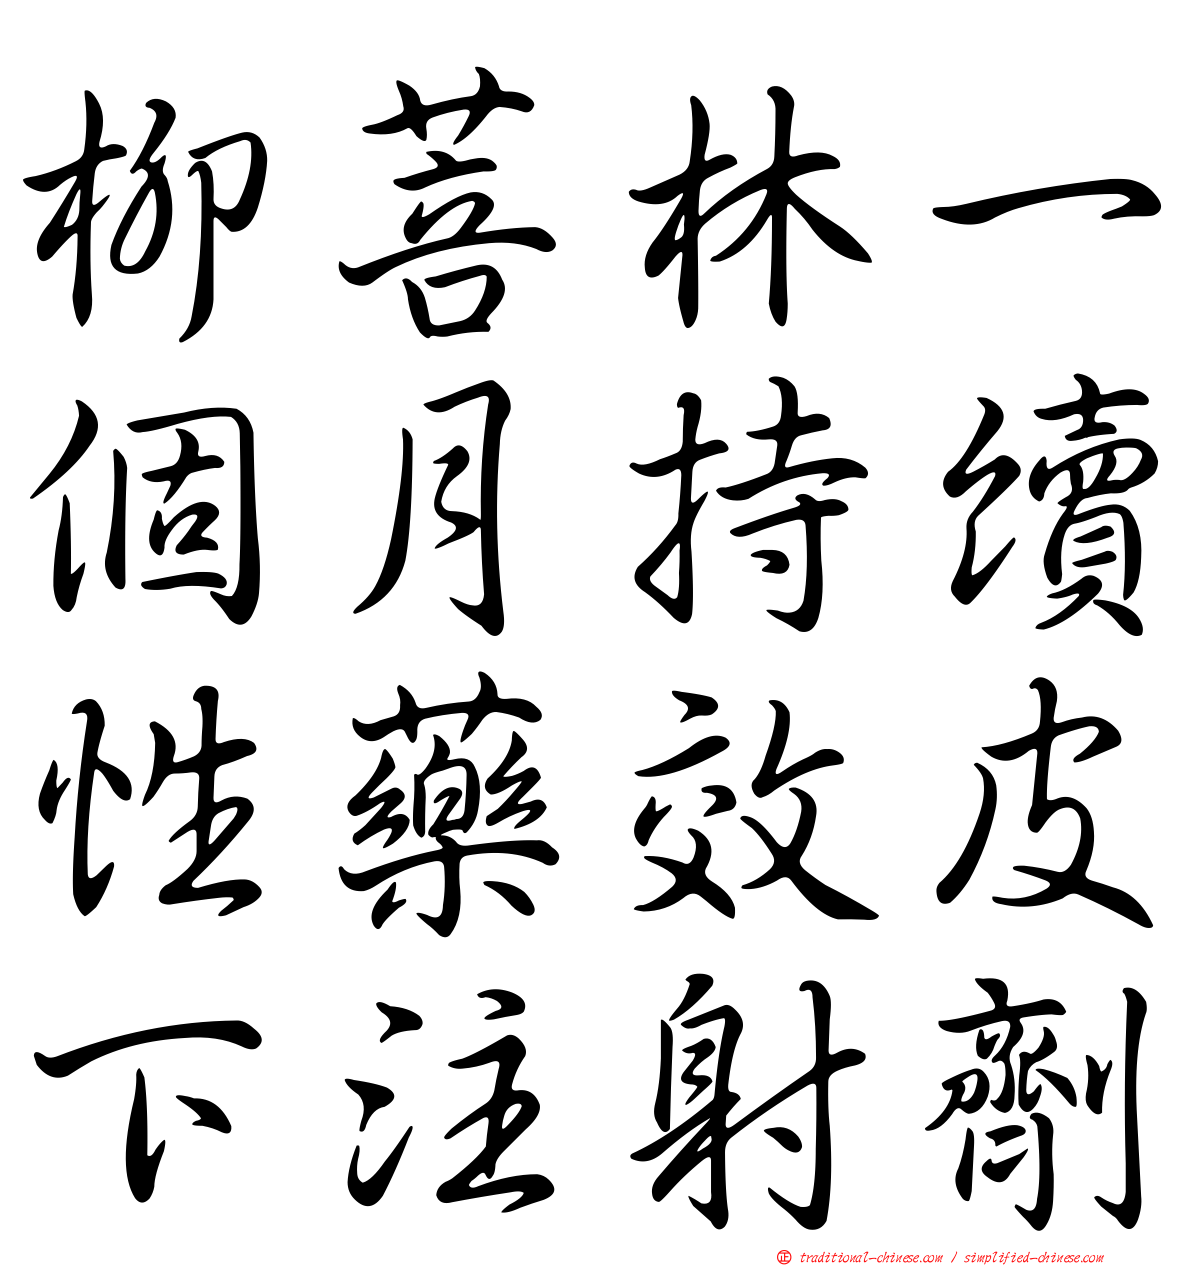 柳菩林一
個月持續
性藥效皮
下注射劑
正 traditional-chinese.com / simplified-chinese.com